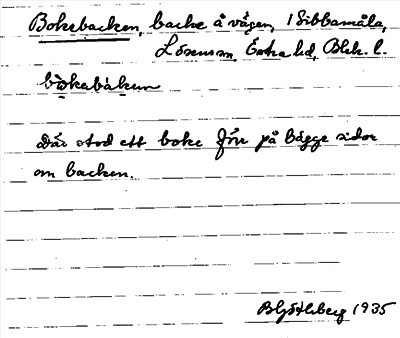 Bokebacken, backe å vägen, i Sibbamåla,
Lösens sn, Östra hd, Blek. l.
bò̤kabàken
Där stod ett boke förr på bägge sidor
om backen.
1935